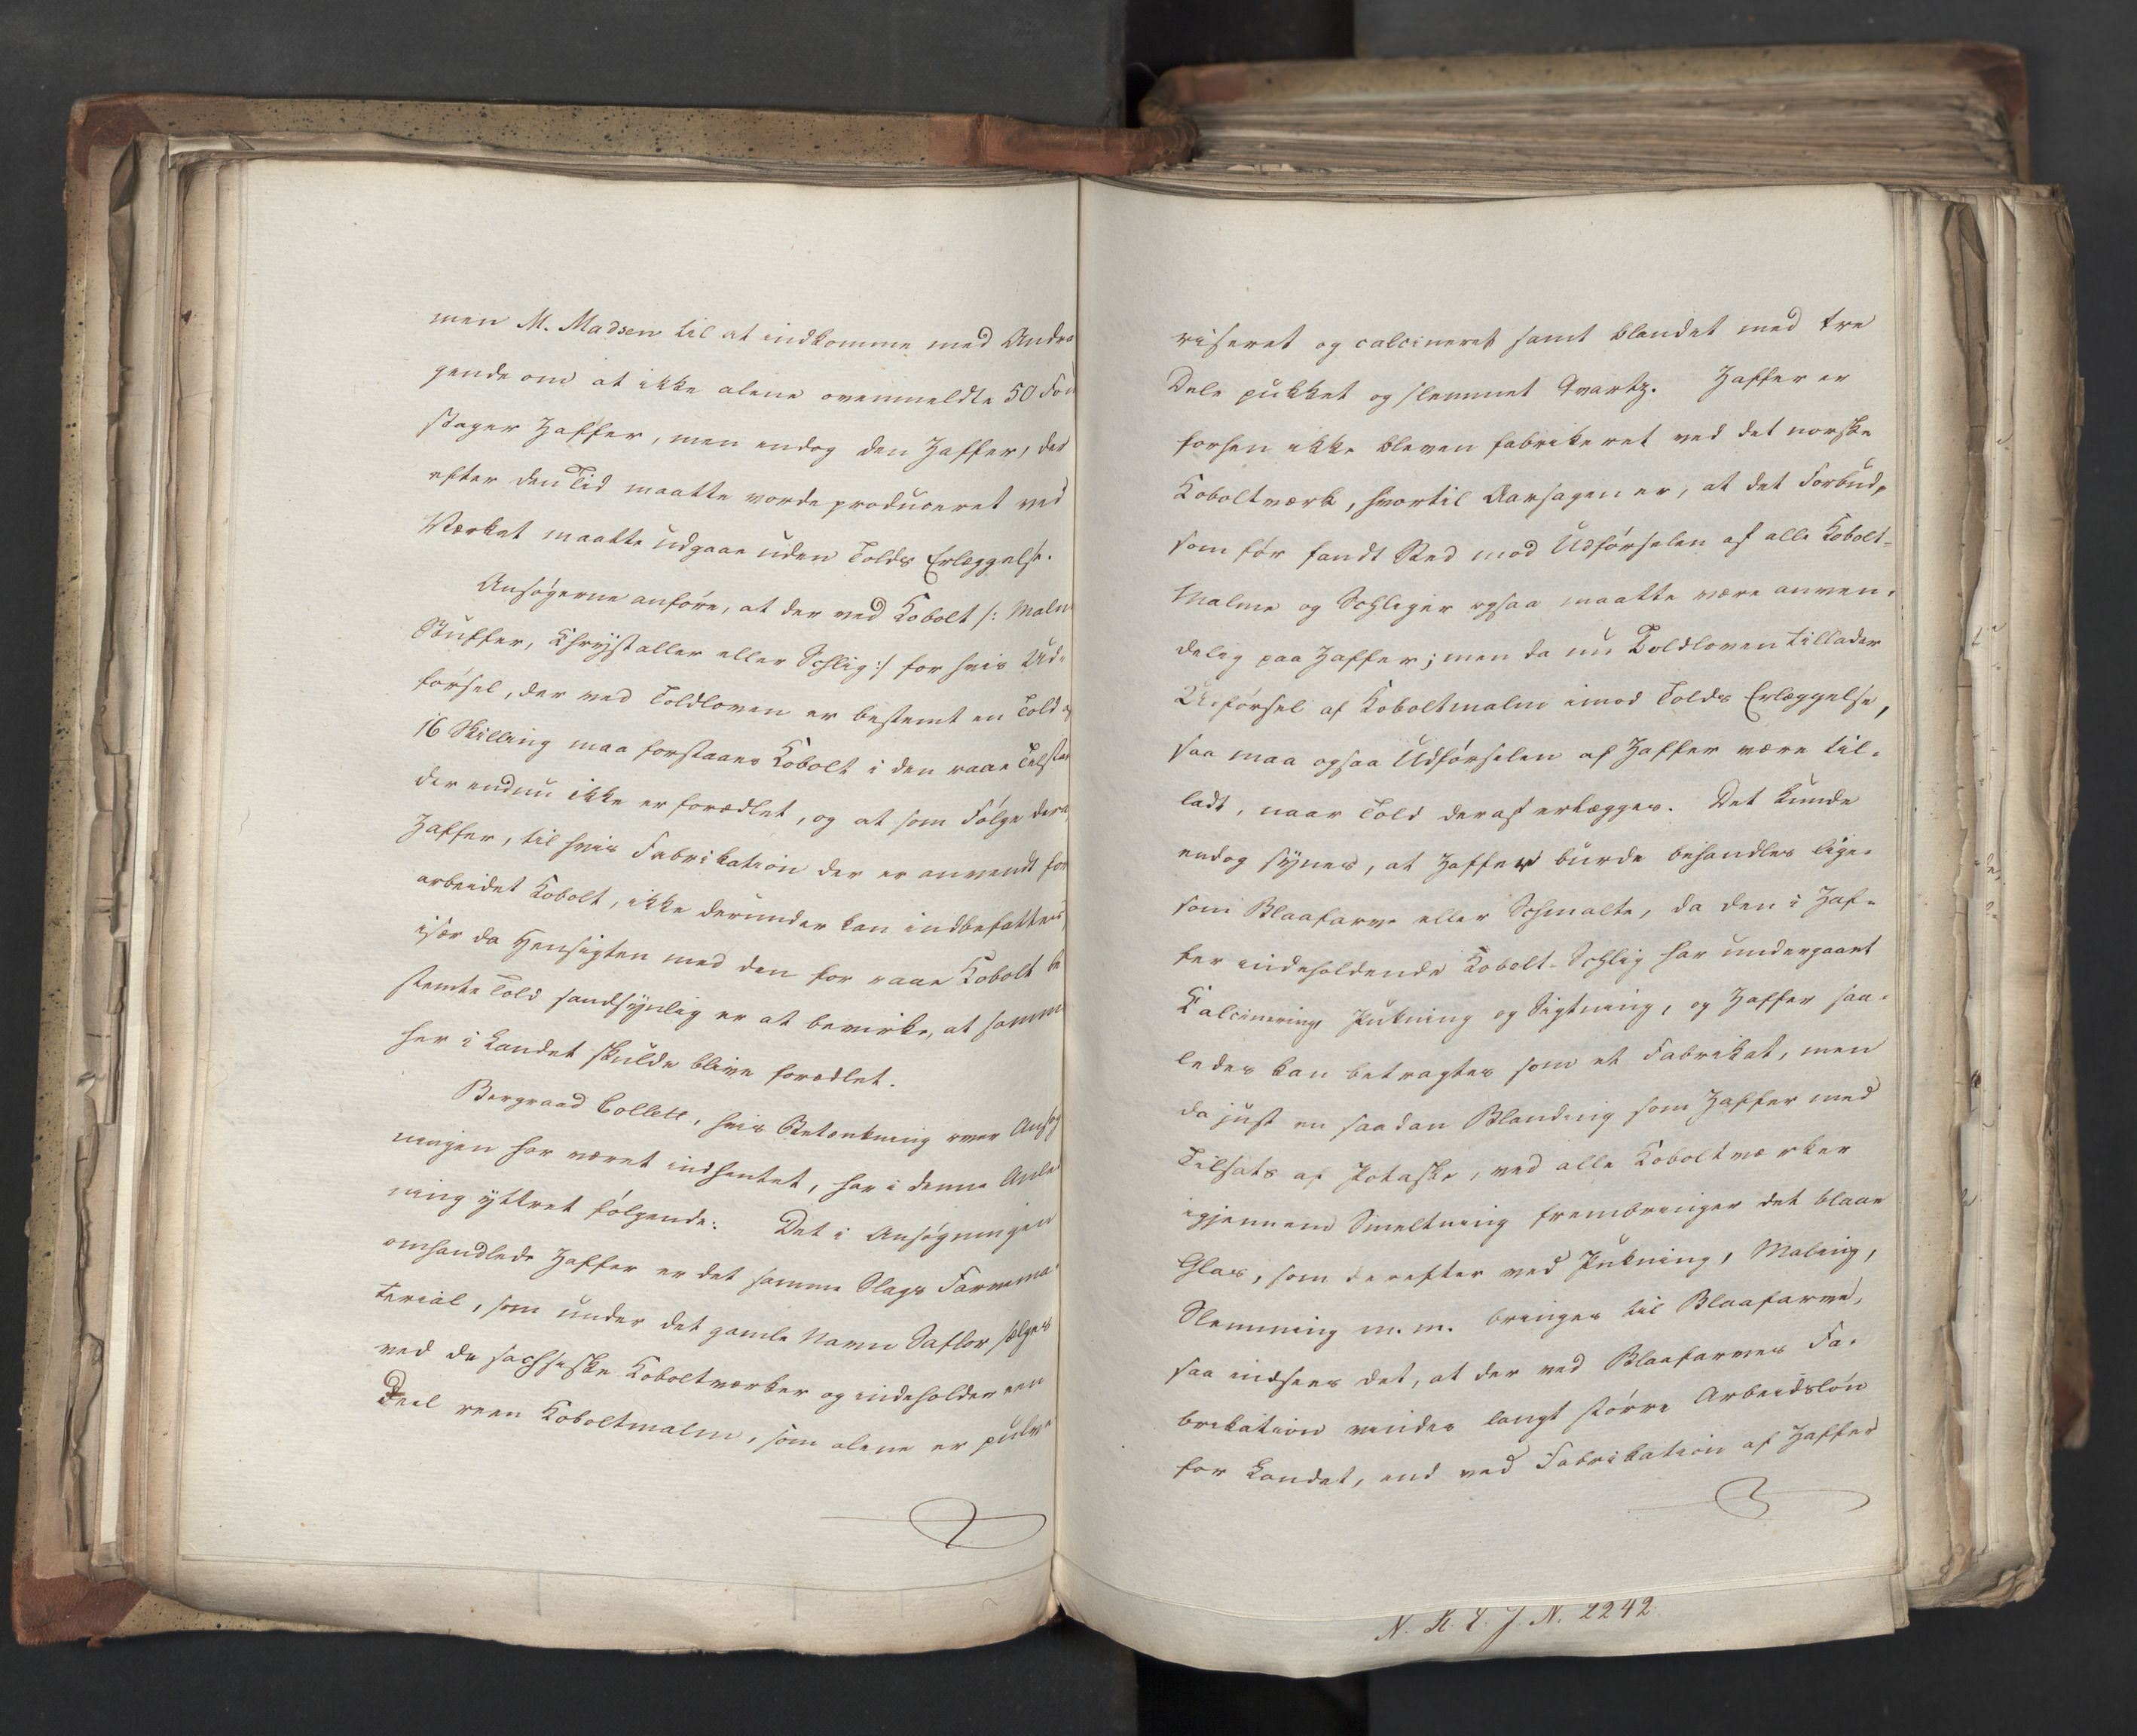 men M. Madsen til at indkomme med Andra
gende om at ikke alene ovenmeldte 50 Fou
stager Zaffer, men endog den Zaffer, der
efter den Tid maatte vorde produceret ved
Værket maatte udgaae uden Tolds Erlæggelse.
Ansøgerne anføre, at der ved Kobolt /: Malm
Stuffer, Chrystaller eller Schlig :/ for hvis Ud-
førsel, der ved Toldloven er bestemt en Told af
16 Skilling maa forstaaes Kobolt i den raae Tilstan
der endnu ikke er forædlet, og at som Følge dera
Zaffer, til hvis Fabrikation der er anvendt for
arbeidet Kobolt, ikke derunder kan indbefattes,
især da Hensigten med den for raae Kobolt be
stemte Told sandsynlig er at bevirke, at samm
her i Landet skulde blive forædlet.
Bergraad Collett, hvis Betænkning over Ansøg
ningen har været indhentet, har i denne Anled
ning yttret følgende: Det i Ansøgningen
omhandlede Zaffer er det samme Slags Farvema-
terial, som under det gamle Navn Saflor sælges
ved de sachsiske Koboltværker og indeholder een
Deel reen Koboltmalm, som alene er pulve
riseret og calcineret samt blandet med tre
Dele pukket og slemmet Qvartz. Zaffer er
forhen ikke bleven fabrikeret ved det norske
Koboltværk, hvortil Aarsagen er, at det Forbud,
som før fandt Sted mod Udførselen af alle Kobolt-
Malme og Schliger ogsaa maatte være anven-
delig paa Zaffer; men da nu Toldloven tillader
Udførsel af Koboltmalm imod Tolds Erlæggelse,
saa maa ogsaa Udførselen af Zaffer være til-
ladt, naar Told deraf erlægges. Det kunde
endog synes, at Zaffer burde behandles lige-
som Blaafarve eller Schmalte, da den i Zaf-
fer indeholdende Kobolt-Schlig har undergaaet
Kalcinering, Pukning og Sigtning, og Zaffer saa-
ledes kan betragtes som et Fabrikat, men
da just en saadan Blanding som Zaffer med
Tilsats af Potaske, ved alle Koboltværker
igjennem Smeltning frembringer det blaae
Glas, som derefter ved Pukning, Maling,
Slemming m.m. bringes til Blaafarve,
saa indsees det, at der ved Blaafarves Fa-
brikation vindes langt større Arbeidsløn
for Landet, end ved Fabrikation af Zaffer
N. R. L. J. N. 2242